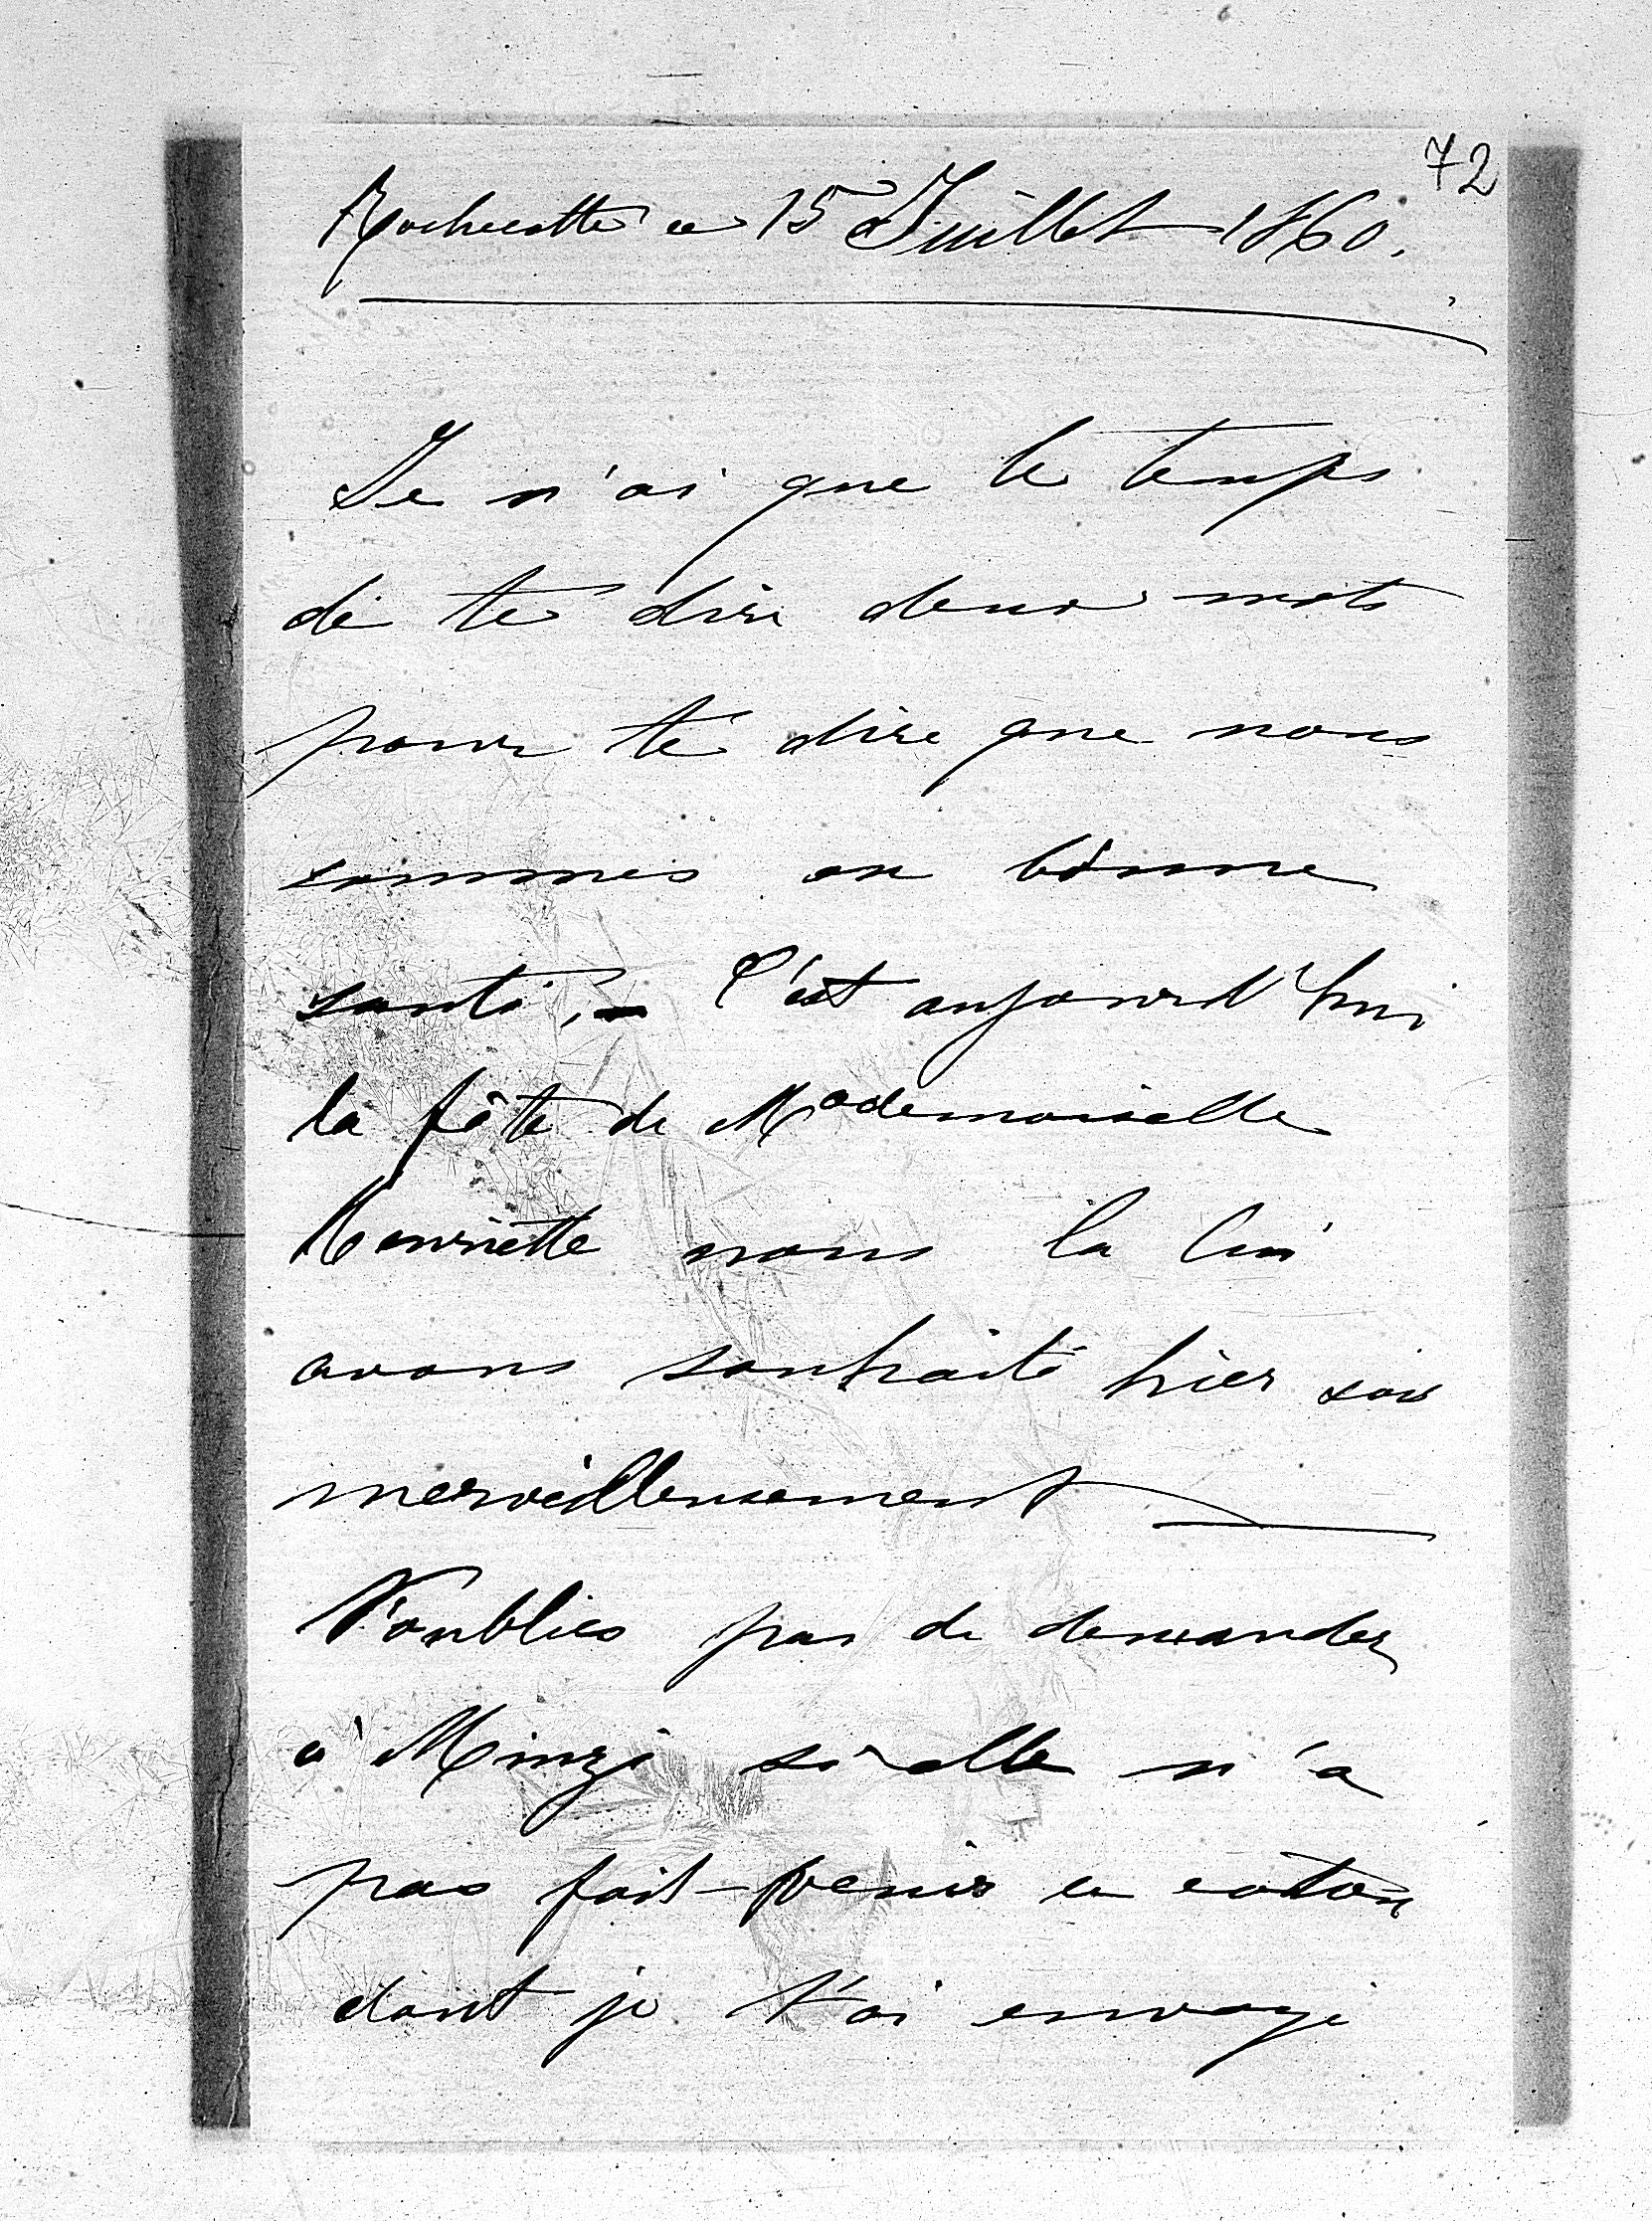 72
Rochecotte ce 15 Juillet 1860.
Je n'ai que le temps
de te dire deux mots
pour te dire que nous
sommes en bonne
santé. — C'est aujourd'hui
la fête de Mademoiselle
Henriette nous la lui
avons souhaité hier soir
merveilleusement —
N'oublies pas de demander
à Minzi si elle n'a
pas fait venir ce coton
dont je t'ai envoyé